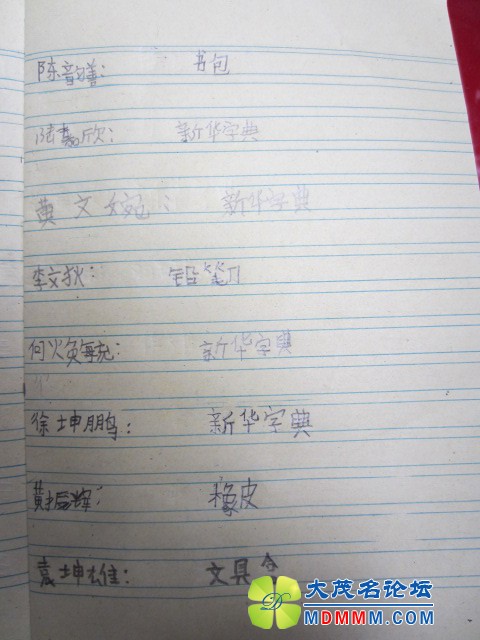 陈韵善： 书包
陆嘉欣： 新华字典
黄文婉： 新华字典
李文狄： 铅笔刀
何火奂毓： 新华字典
徐坤鹏： 新华字典
黄后辉： 橡皮
袁坤雄： 文具盒
大茂名论坛
MDMMM.COM